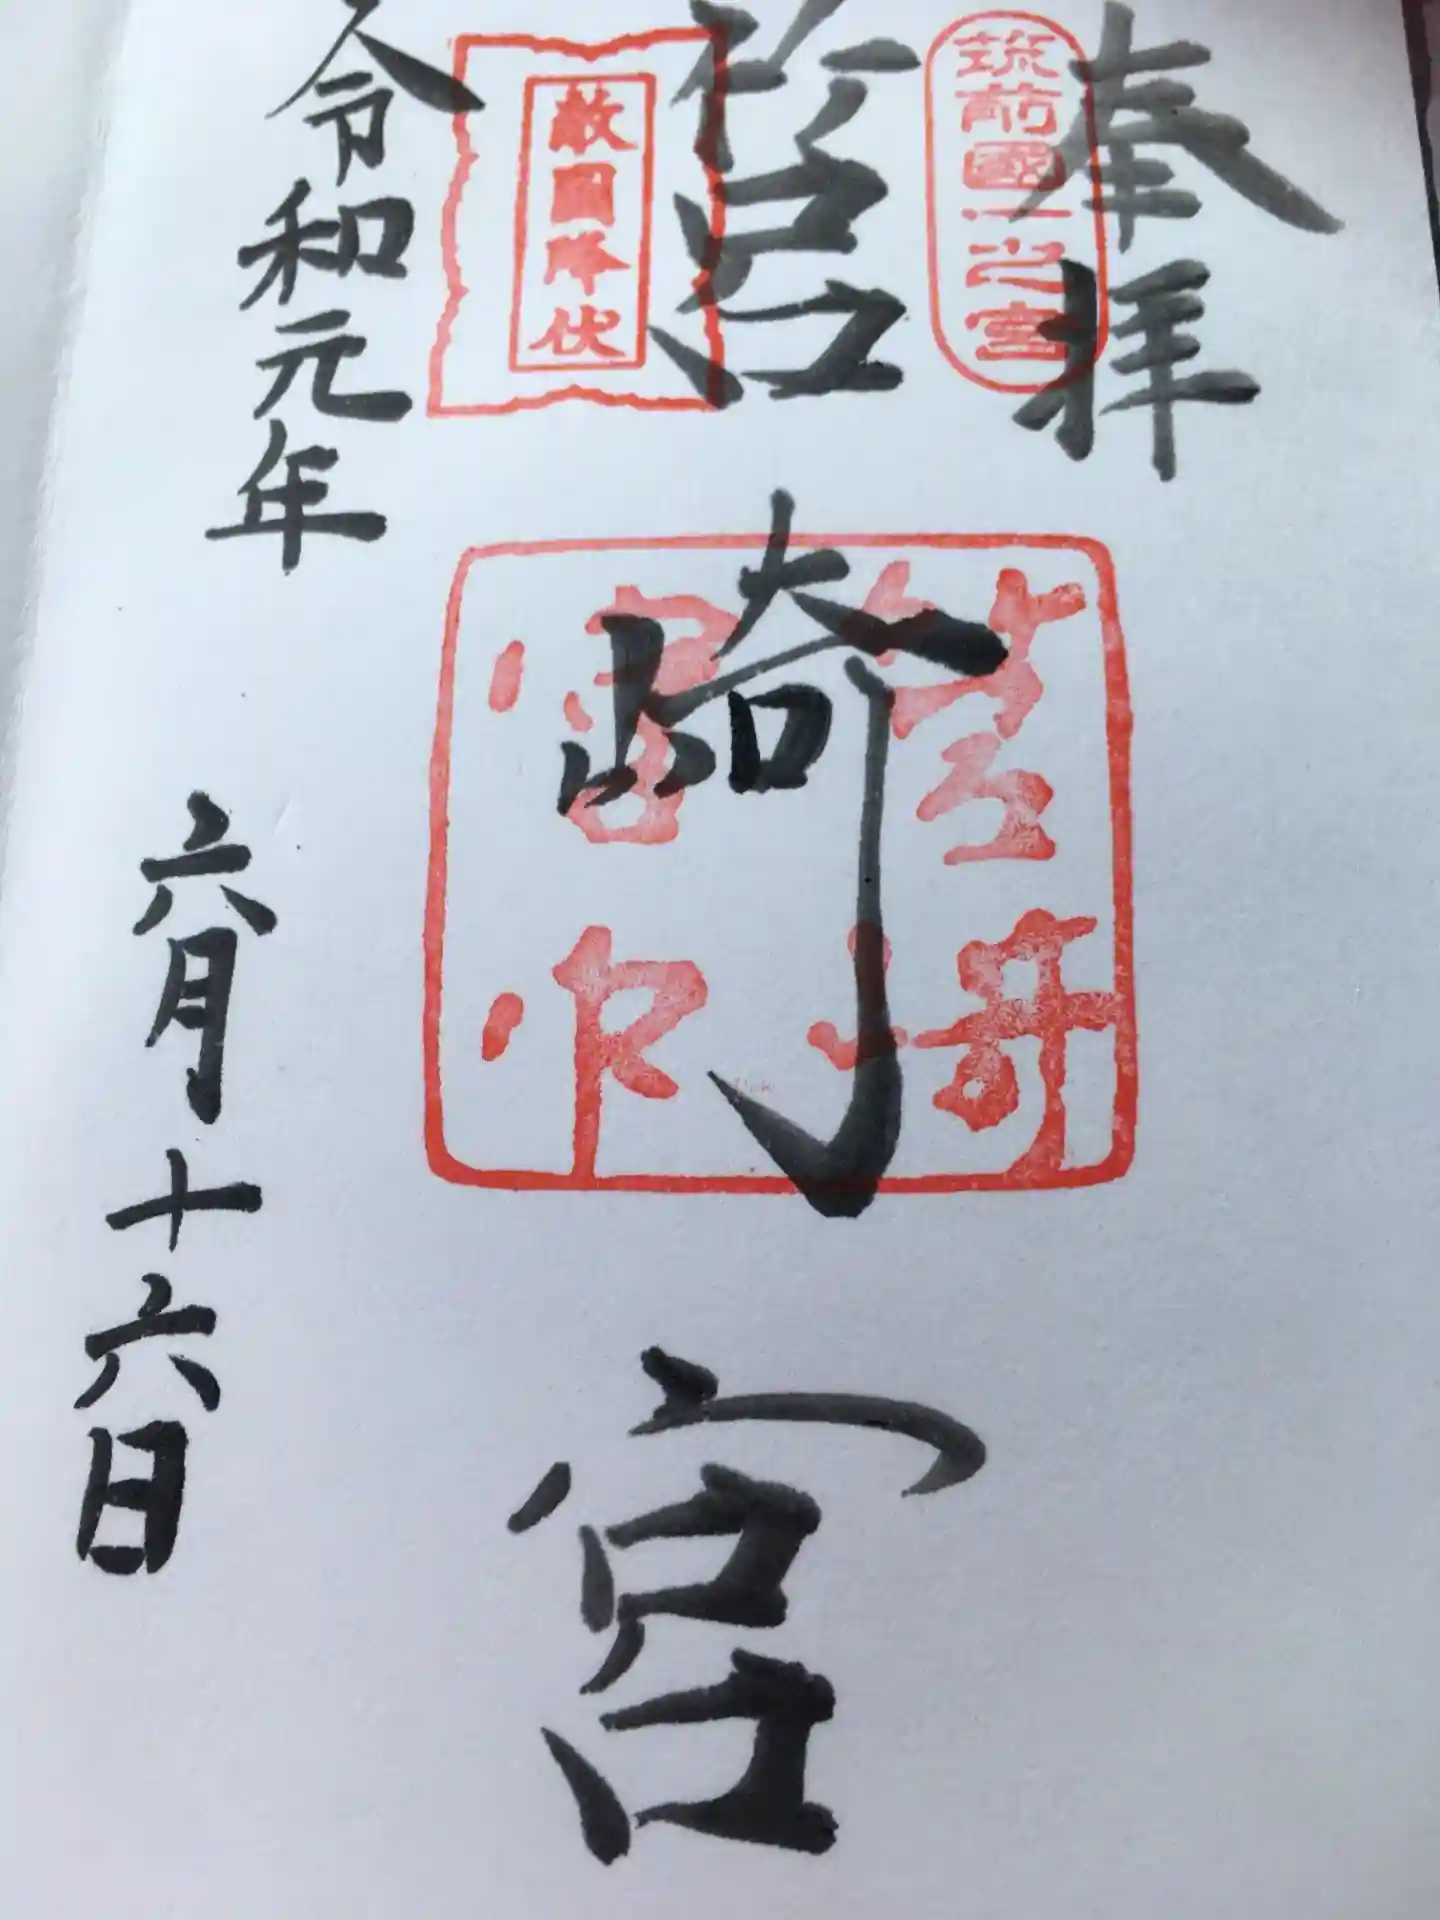 奉拝
筑前國一之宮
筥崎宮
敵国降伏
筥崎
宮印
令和元年
六月十六日